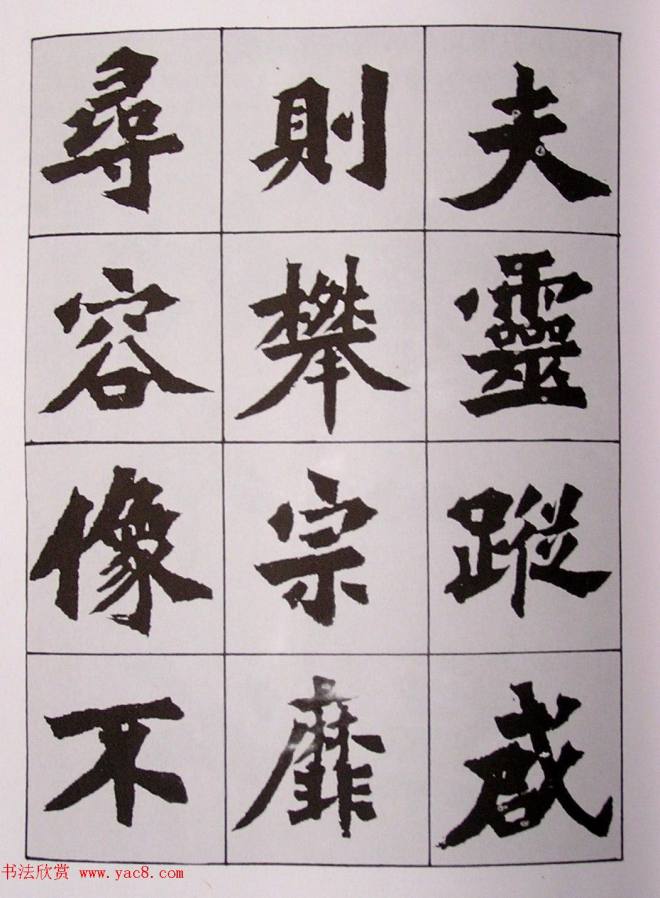 夫靈蹤啟
則攀宗靡
尋容像不
书法欣赏 www.yac8.com